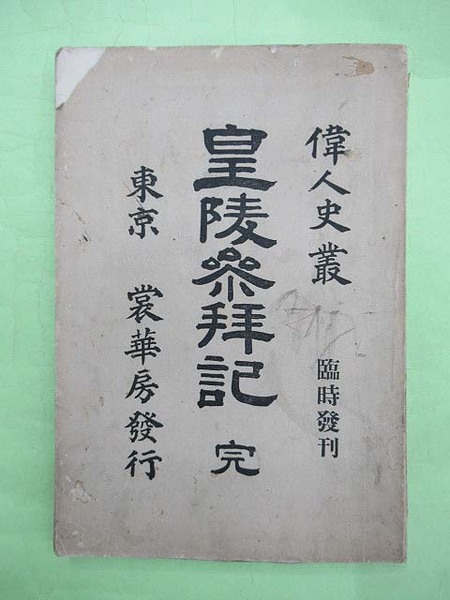 偉人史叢 臨時發刊
皇陵參拜記 完
東京 裳華房發行